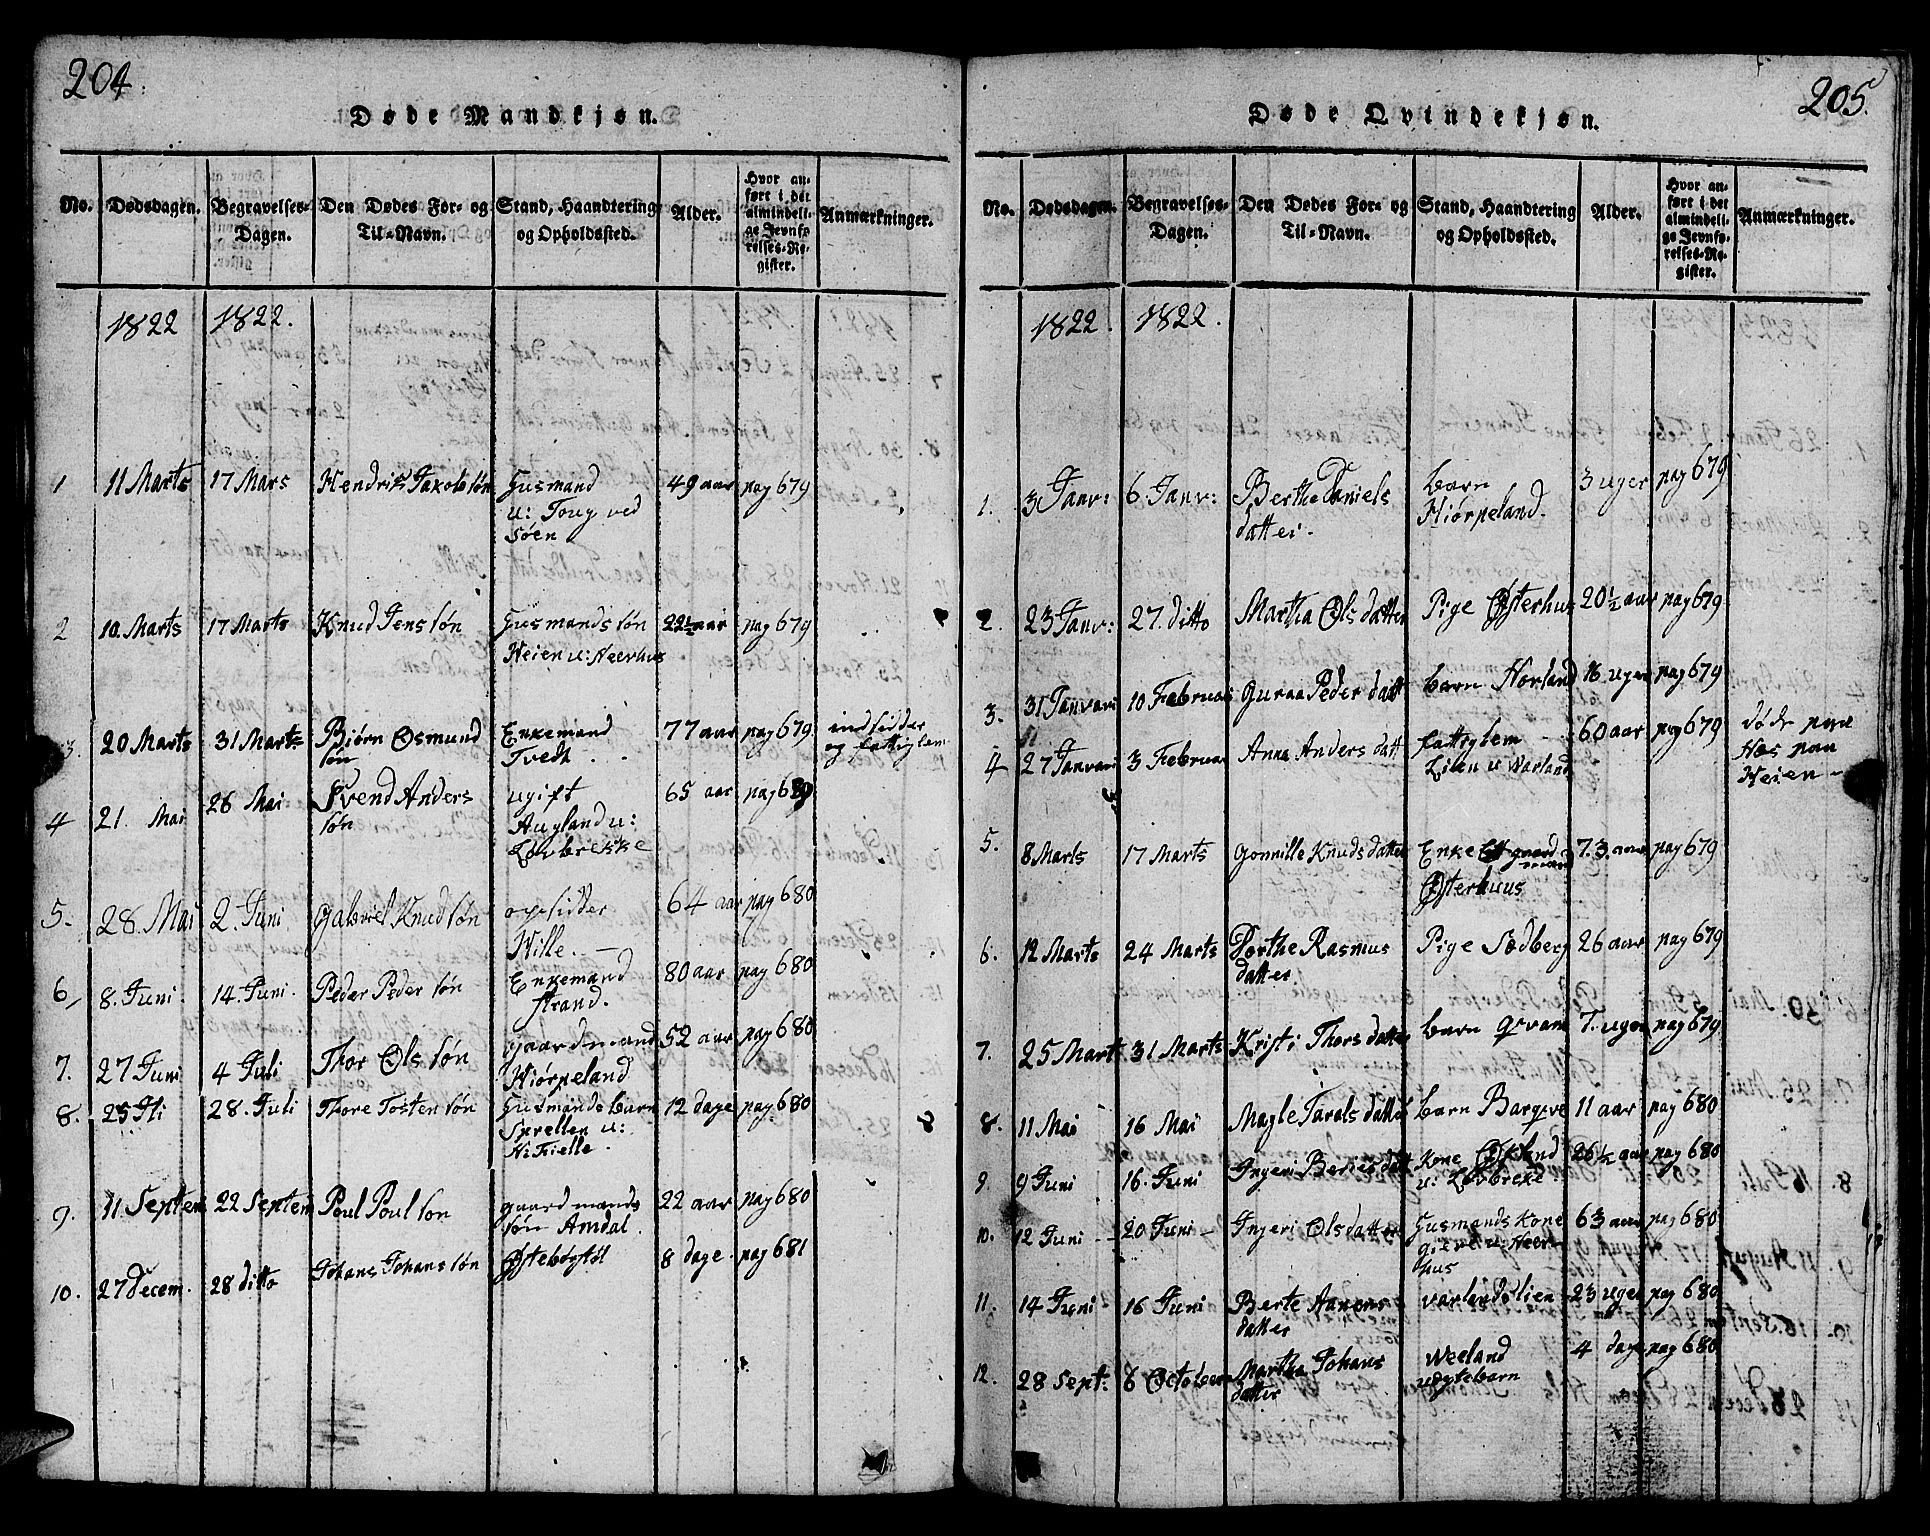 204.
Døde Mandkjøn.
No. Dødsdagen. Begravelses-Dagen. Den Dødes For- og Til-Navn. Stand, Haandtering og Opholdssted. Alder. Hvor anført i det almindelige Jevnførelses-Register. Anmærkninger.
1822 1822.
1 11 Marts 17 Mars Hendrik Jaxobsøn Husmand 49 aar pag 679
u: Toug ved
Søen
2 10. Marts 17 Marts Knud Jens søn Husmands søn 22½ aar pag 679
Heien u: Heerhus
3. 20 Marts 31 Marts Biørn Osmund Enkemand 77 aar pag 679 indsidder
søn Tvedt og fattiglem
4 21. Mai 26 Mai Svend Anders ugift 65 aar pag 689
søn Augland u:
Løvbrekke
5. 28. Mai 2. Juni Gabriel Knud søn opsidder 64 aar pag 680
Wille.
6, 8. Juni 14. Juni. Peder Peder søn Enkemand 80 aar pag 680
strand.
7. 27 Juni 4 Juli Thor Ols søn gaardmand 52 aar pag 680
Hiørpeland
8. 25 Jli 28. Juli Thore Tosten søn Husmands barn 12 dage pag 680
Sprellen u:
9. 11 Septem 22 Septem Poul Poul son gaardmands 22 aar pag 680
søn Amdal.
10. 27 Decem. 28 ditto Johans Johans søn Østebøgtøl 8 dage pag 681
205.
Døde Qvindekjøn.
No. Dødsdagen. Begravelses-Dagen. Den Dødes For- og Til-Navn. Stand, Haandtering og Opholdssted. Alder. Hvor anført i det almindelige Jevnførelses-Register. Anmærkninger.
1822. 1822.
1. 3 Janv: 6. Janv: Berthe Daniels barn 3 uger pag 679
datter. Hiørpeland.
2. 23 Janv: 27. ditto Martha Ols datter Pige Østerhus 20½ aar pag 679
3. 31 Janvari 10 Februari Guraa Peder datt barn Norland 16 uger pag 679
4 27 Janvari 3 Februar Anna Anders datt fattiglem 60 aar pag 679 døde paa
Lilen u Varland Hæs paa
Heien
5. 8 Marts 17 Marts Gonnille Knuds datter Enke 73 aar pag 679
Østerhuus
6. 12 Marts 24 Marts Dorthe Rasmus Pige Sødberg 26 aar pag 679
datter
7. 25 Mart 31 Marts Kristi Thors datter barn Qvam 7. uger pag 679
8. 11 Mai 16 Mai Magle Tarals datter barn Bargeve 11 aar pag 680
9. 9 Juni 16. Juni Ingeri Beries datt Kone Økland 26½ aar pag 680
u: Løvbreke
10. 12 Juni 20 Juni Ingeri Ols datter Husmands Kone 63 aar pag 680
u: Heer-
hus
11. 14 Juni 16 Juni Berte Aanens varlandslien 23 uger pag 680
datter
12. 28 Sept: 6 October Martha Johans Weeland 4 dage pag 680
datter uægtebarn